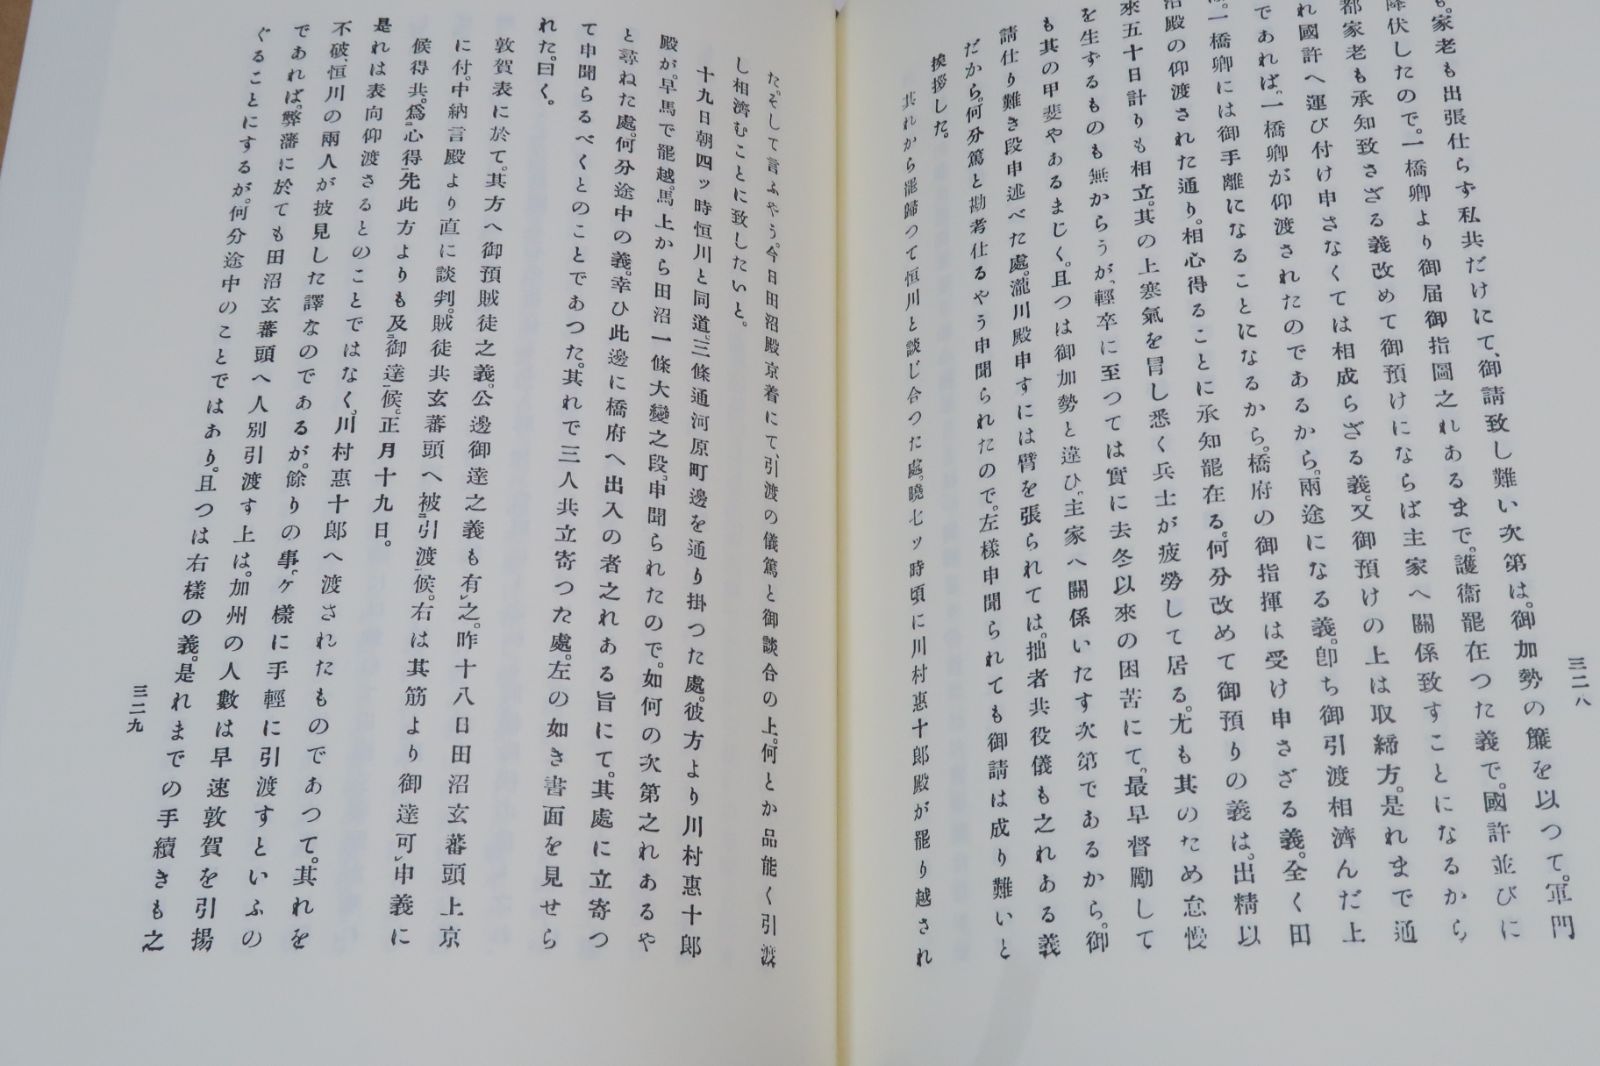 も。家老も出張仕らず私共だけにて、御請致し難い次第は。御加勢の簾を以つて。軍門
降伏したので。一橋卿より御届御指圖之れあるまで。護衞罷在つた義で。國許並びに
都家老も承知致さざる義改めて御預けにならば主家へ關係致すことになるから
れ國許へ運び付け申さなくては相成らざる義。又御預けの上は取締方。是れまで通
であれば。一橋卿が仰渡されたのであるから。兩途になる義。卽ち御引渡相濟んだ上
は。一橋卿には御手離になることになるから。橋府の御指揮は受け申さざる義。全く田
沼殿の仰渡された通り。相心得ることに承知罷在る。何分改めて御預りの義は。出精以
來五十日計りも相立。其の上寒氣を冒し悉く兵士が疲勞して居る。尤も其のため怠慢
を生ずるものも無からうが、輕卒に至つては實に去冬以來の困苦にて。最早督勵して
も其の甲斐やあるまじく。且つは御加勢と違ひ。主家へ關係いたす次第であるから。御
請仕り難き段申述べた處。瀧川殿申すには臂を張られては。拙者共役儀も之れある義
だから。何分篤と勘考仕るやう申聞られたので。左樣申聞られても御請は成り難いと
挨拶した。
其れから罷歸つて恒川と談じ合つた處。曉七ッ時頃に川村惠十郎殿が罷り越され
三二八
た。そして言ふやう。今日田沼殿京着にて、引渡の儀篤と御談合の上。何とか品能く引渡
し相濟むことに致したいと。
十九日朝四ッ時恒川と同道。三條通河原町邊を通り掛つた處。彼方より川村惠十郎
殿が。早馬で罷越。馬上から田沼一條大變之段。申聞られたので。如何の次第之れあるや
と尋ねた處。何分途中の義。幸ひ此邊に橋府へ出入の者之れある旨にて。其處に立寄つ
て申聞らるべくとのことであつた。其れで三人共立寄つた處。左の如き書面を見せら
れた。曰く。
敦賀表に於て。其方へ御預賊徒之義。公邊御達之義も有レ之。昨十八日田沼玄蕃頭上京
に付。中納言殿より直に談判。賊徒共玄蕃頭へ被二引渡一候。右は其筋より御達可レ申義に
候得共。爲二心得一先此方よりも及二御達一候。正月十九日。
是れは表向仰渡さるとのことではなく、川村惠十郎へ渡されたものであつて。其れを
不破、恒川の兩人が披見した譯なのであるが。餘りの事。ケ樣に手輕に引渡すといふの
であれば。弊藩に於ても田沼玄蕃頭へ人別引渡す上は。加州の人數は早速敦賀を引揚
ぐることにするが。何分途中のことではあり。且つは右樣の義。是れまでの手續きも之
三二九